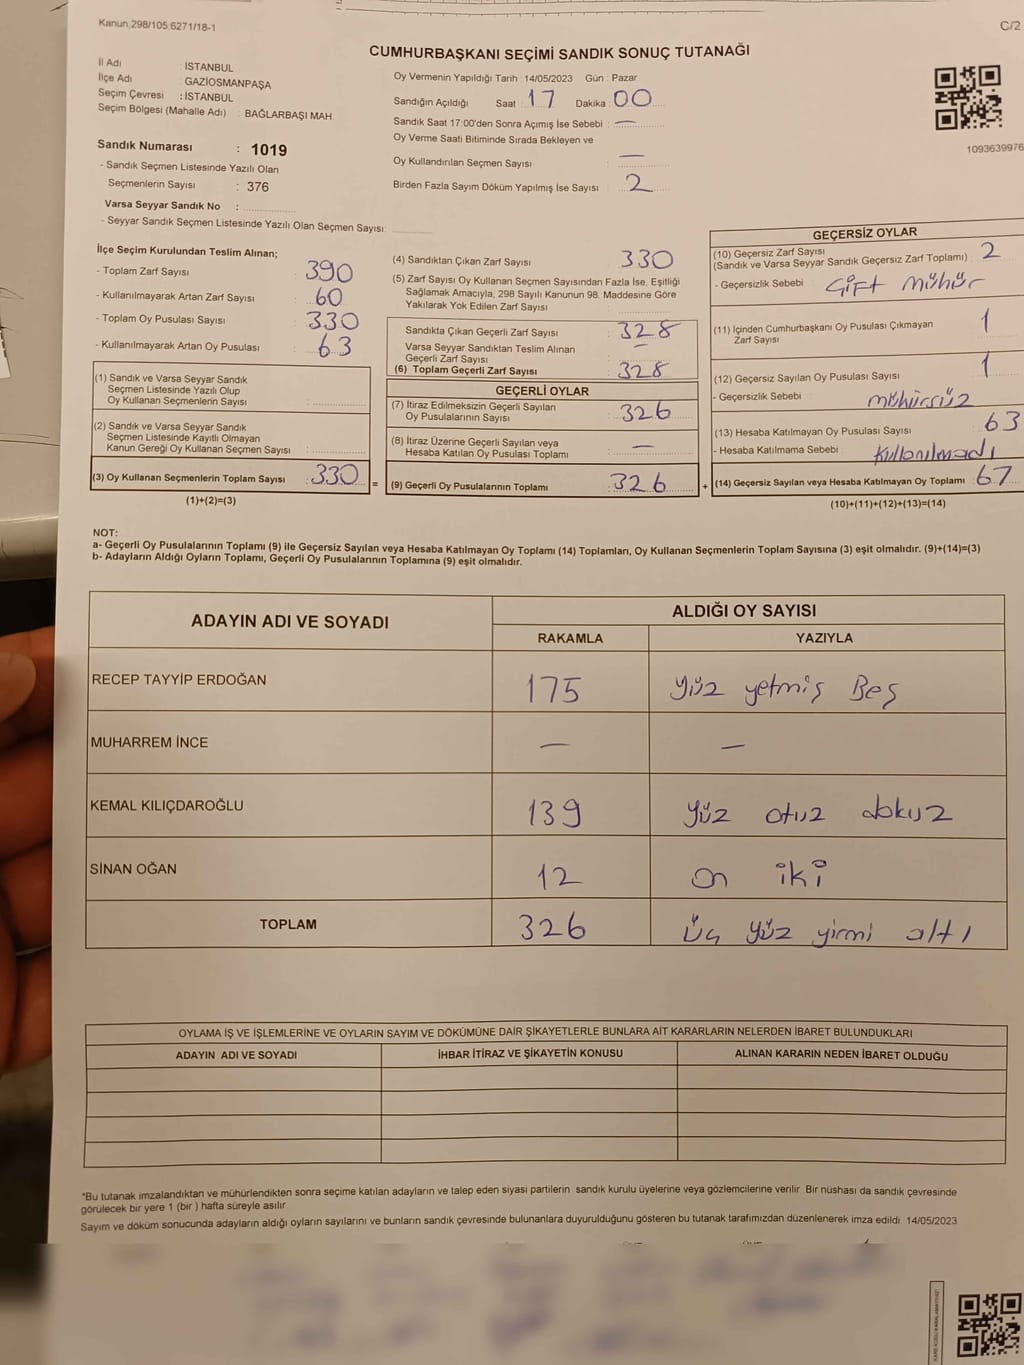 Kanun,298/105,6271/18-1
C/2
CUMHURBAŞKANI SEÇİMİ SANDIK SONUÇ TUTANAĞI
İl Adı : İSTANBUL
İlçe Adı GAZİOSMANPAŞA
Seçim Çevresi : İSTANBUL
Seçim Bölgesi (Mahalle Adı) : BAĞLARBAŞI MAH.
Sandık Numarası : 1019
- Sandık Seçmen Listesinde Yazılı Olan
Seçmenlerin Sayısı : 376
Varsa Seyyar Sandık No :
- Seyyar Sandık Seçmen Listesinde Yazılı Olan Seçmen Sayısı:
Oy Vermenin Yapıldığı Tarih : 14/05/2023 Gün : Pazar
Sandığın Açıldığı Saat : 17 Dakika : 00
Sandık Saat 17:00'den Sonra Açımış İse Sebebi : —
Oy Verme Saati Bitiminde Sırada Bekleyen ve
Oy Kullandırılan Seçmen Sayısı : —
Birden Fazla Sayım Döküm Yapılmış İse Sayısı : 2
1093639976
İlçe Seçim Kurulundan Teslim Alınan;
- Toplam Zarf Sayısı : 390
- Kullanılmayarak Artan Zarf Sayısı : 60
- Toplam Oy Pusulası Sayısı : 330
- Kullanılmayarak Artan Oy Pusulası : 63
(1) Sandık ve Varsa Seyyar Sandık
Seçmen Listesinde Yazılı Olup
Oy Kullanan Seçmenlerin Sayısı :
(2) Sandık ve Varsa Seyyar Sandık
Seçmen Listesinde Kayıtlı Olmayan
Kanun Gereği Oy Kullanan Seçmen Sayısı :
(3) Oy Kullanan Seçmenlerin Toplam Sayısı : 330 =
(1)+(2)=(3)
(4) Sandıktan Çıkan Zarf Sayısı 330
(5) Zarf Sayısı Oy Kullanan Seçmen Sayısından Fazla İse, Eşitliği
Sağlamak Amacıyla, 298 Sayılı Kanunun 98. Maddesine Göre
Yakılarak Yok Edilen Zarf Sayısı :
Sandıkta Çıkan Geçerli Zarf Sayısı : 328
Varsa Seyyar Sandıktan Teslim Alınan —
Geçerli Zarf Sayısı
(6) Toplam Geçerli Zarf Sayısı : 328
GEÇERLİ OYLAR
(7) İtiraz Edilmeksizin Geçerli Sayılan
Oy Pusulalarının Sayısı : 326
(8) İtiraz Üzerine Geçerli Sayılan veya
Hesaba Katılan Oy Pusulası Toplamı : —
(9) Geçerli Oy Pusulalarının Toplamı : 326 +
GEÇERSİZ OYLAR
(10) Geçersiz Zarf Sayısı 2
(Sandık ve Varsa Seyyar Sandık Geçersiz Zarf Toplamı) :
- Geçersizlik Sebebi : Çift mühür
(11) İçinden Cumhurbaşkanı Oy Pusulası Çıkmayan 1
Zarf Sayısı
(12) Geçersiz Sayılan Oy Pusulası Sayısı : 1
- Geçersizlik Sebebi : mühürsüz
(13) Hesaba Katılmayan Oy Pusulası Sayısı : 63
- Hesaba Katılmama Sebebi : Kullanılmadı
(14) Geçersiz Sayılan veya Hesaba Katılmayan Oy Toplamı : 67
(10)+(11)+(12)+(13)=(14)
NOT:
a- Geçerli Oy Pusulalarının Toplamı (9) ile Geçersiz Sayılan veya Hesaba Katılmayan Oy Toplamı (14) Toplamları, Oy Kullanan Seçmenlerin Toplam Sayısına (3) eşit olmalıdır. (9)+(14)=(3)
b- Adayların Aldığı Oyların Toplamı, Geçerli Oy Pusulalarının Toplamına (9) eşit olmalıdır.
ADAYIN ADI VE SOYADI
ALDIĞI OY SAYISI
RAKAMLA YAZIYLA
RECEP TAYYİP ERDOĞAN 175 Yüz yetmiş Beş
MUHARREM İNCE — —
KEMAL KILIÇDAROĞLU 139 Yüz otuz dokuz
SİNAN OĞAN 12 On iki
TOPLAM 326 Üç yüz yirmi altı
OYLAMA İŞ VE İŞLEMLERİNE VE OYLARIN SAYIM VE DÖKÜMÜNE DAİR ŞİKAYETLERLE BUNLARA AİT KARARLARIN NELERDEN İBARET BULUNDUKLARI
ADAYIN ADI VE SOYADI İHBAR İTİRAZ VE ŞİKAYETİN KONUSU ALINAN KARARIN NEDEN İBARET OLDUĞU
*Bu tutanak imzalandıktan ve mühürlendikten sonra seçime katılan adayların ve talep eden siyasi partilerin sandık kurulu üyelerine veya gözlemcilerine verilir. Bir nüshası da sandık çevresinde
görülecek bir yere 1 (bir ) hafta süreyle asılır.
Sayım ve döküm sonucunda adayların aldığı oyların sayılarını ve bunların sandık çevresinde bulunanlara duyurulduğunu gösteren bu tutanak tarafımızdan düzenlenerek imza edildi. 14/05/2023